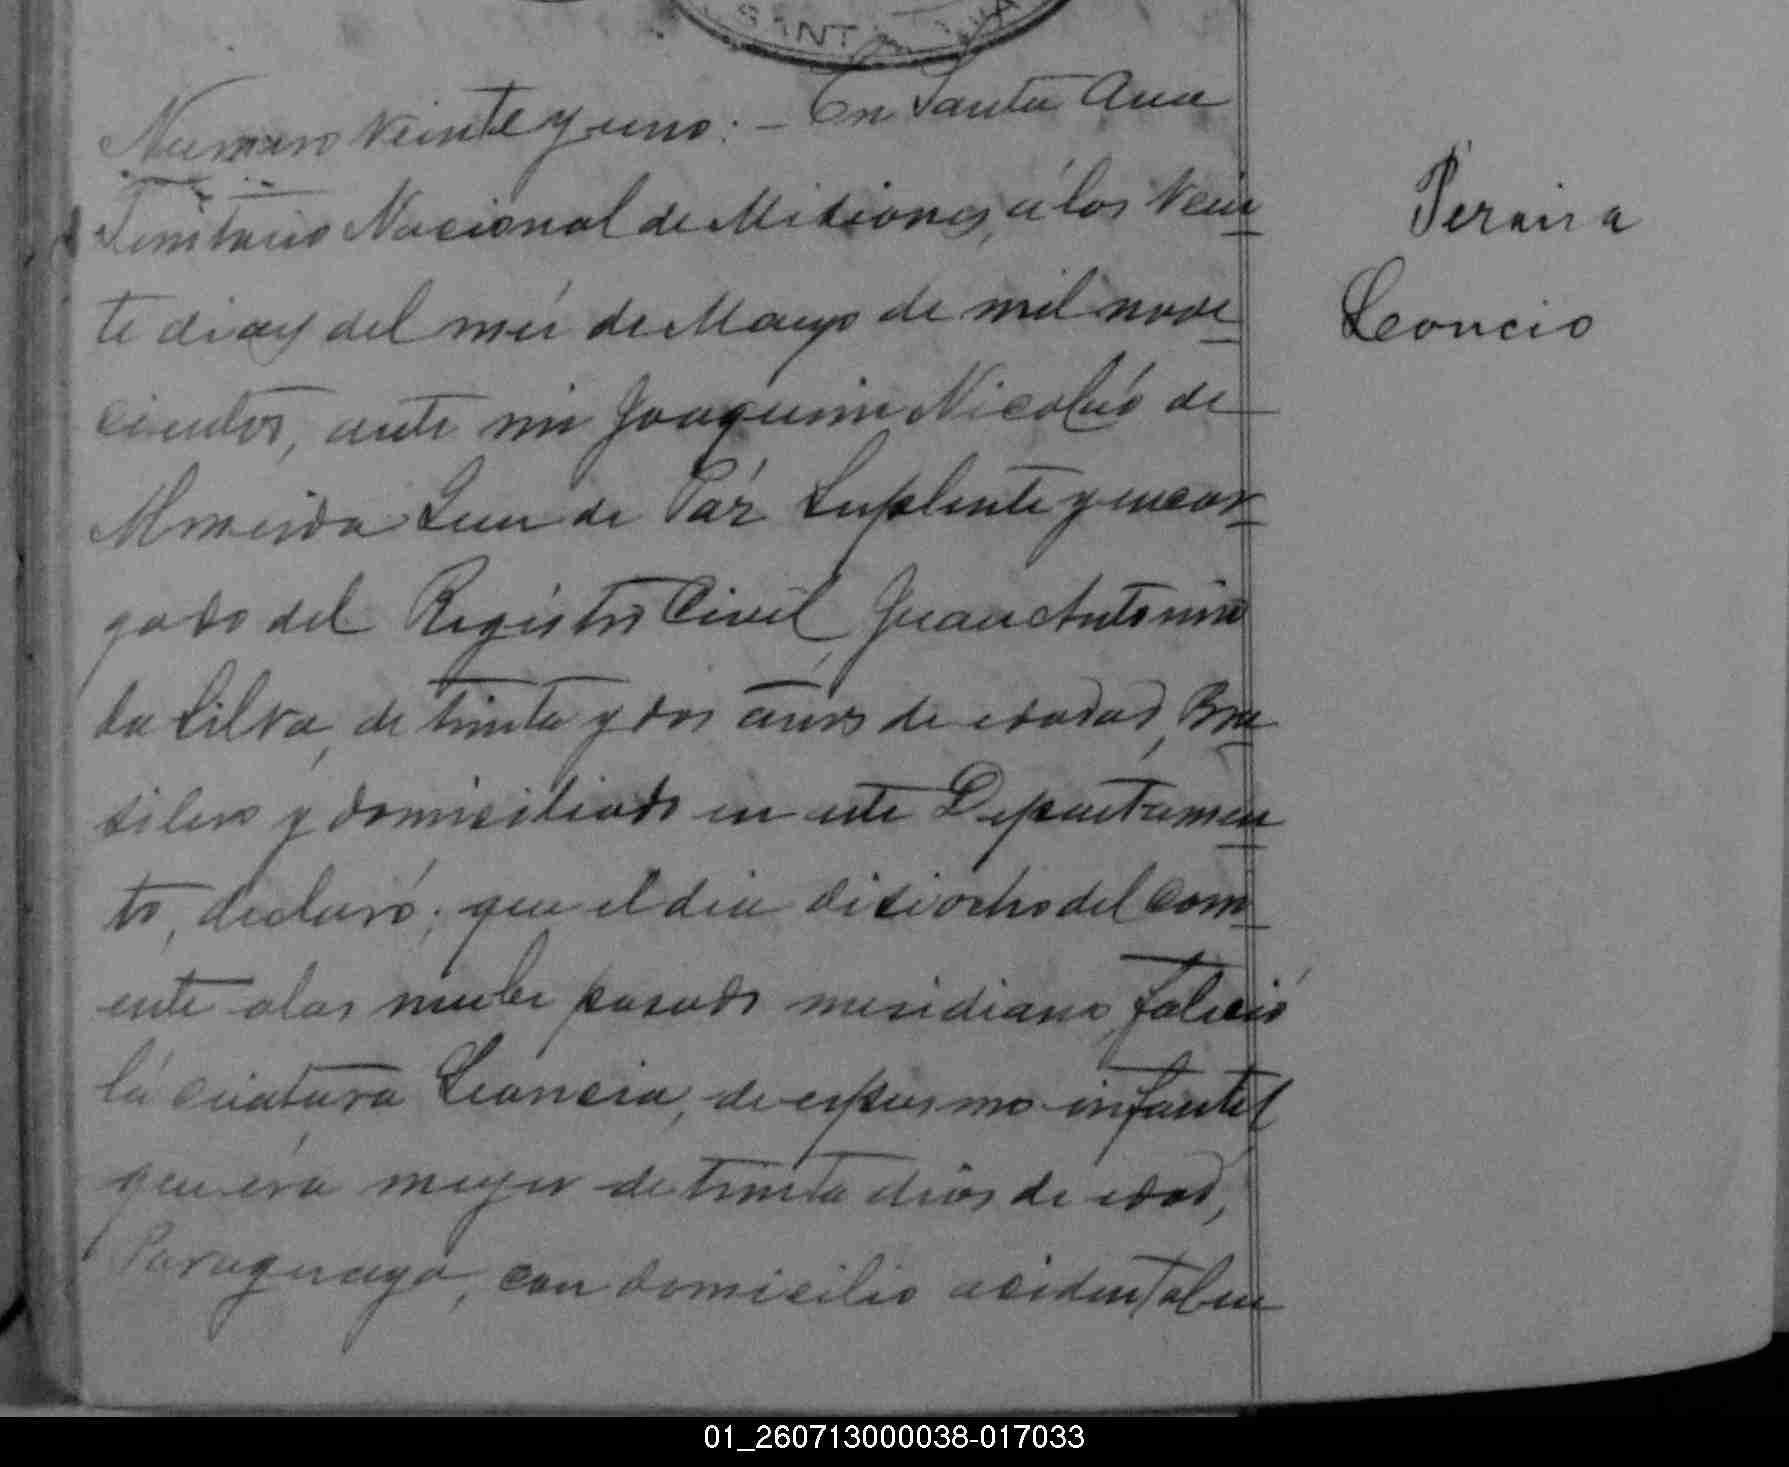 SANTA ANA
Numero Veinte y uno: - En Santa Ana
Territorio Nacional de Misiones, á los Vein
te dias del més de Mayo de mil nove
cientos, ante mi Joaquin Nicolás de
Almeida Juez de Páz Suplente y encar
gado del Registro Civil, Juan Antonio
da Silva, de trinta y dos años de edad, Bra
silero y domiciliado en este Departamen
to, declaró; que el dia disiocho del corri
ente a las nuebe pasado meridiano, faleció
la criatura Leoncia, de espasmo infantil
que era mujer de trinta dias de edad,
Paraguaya, con domicilio acidental en
Peraira
Leoncio
01_260713000038-017033